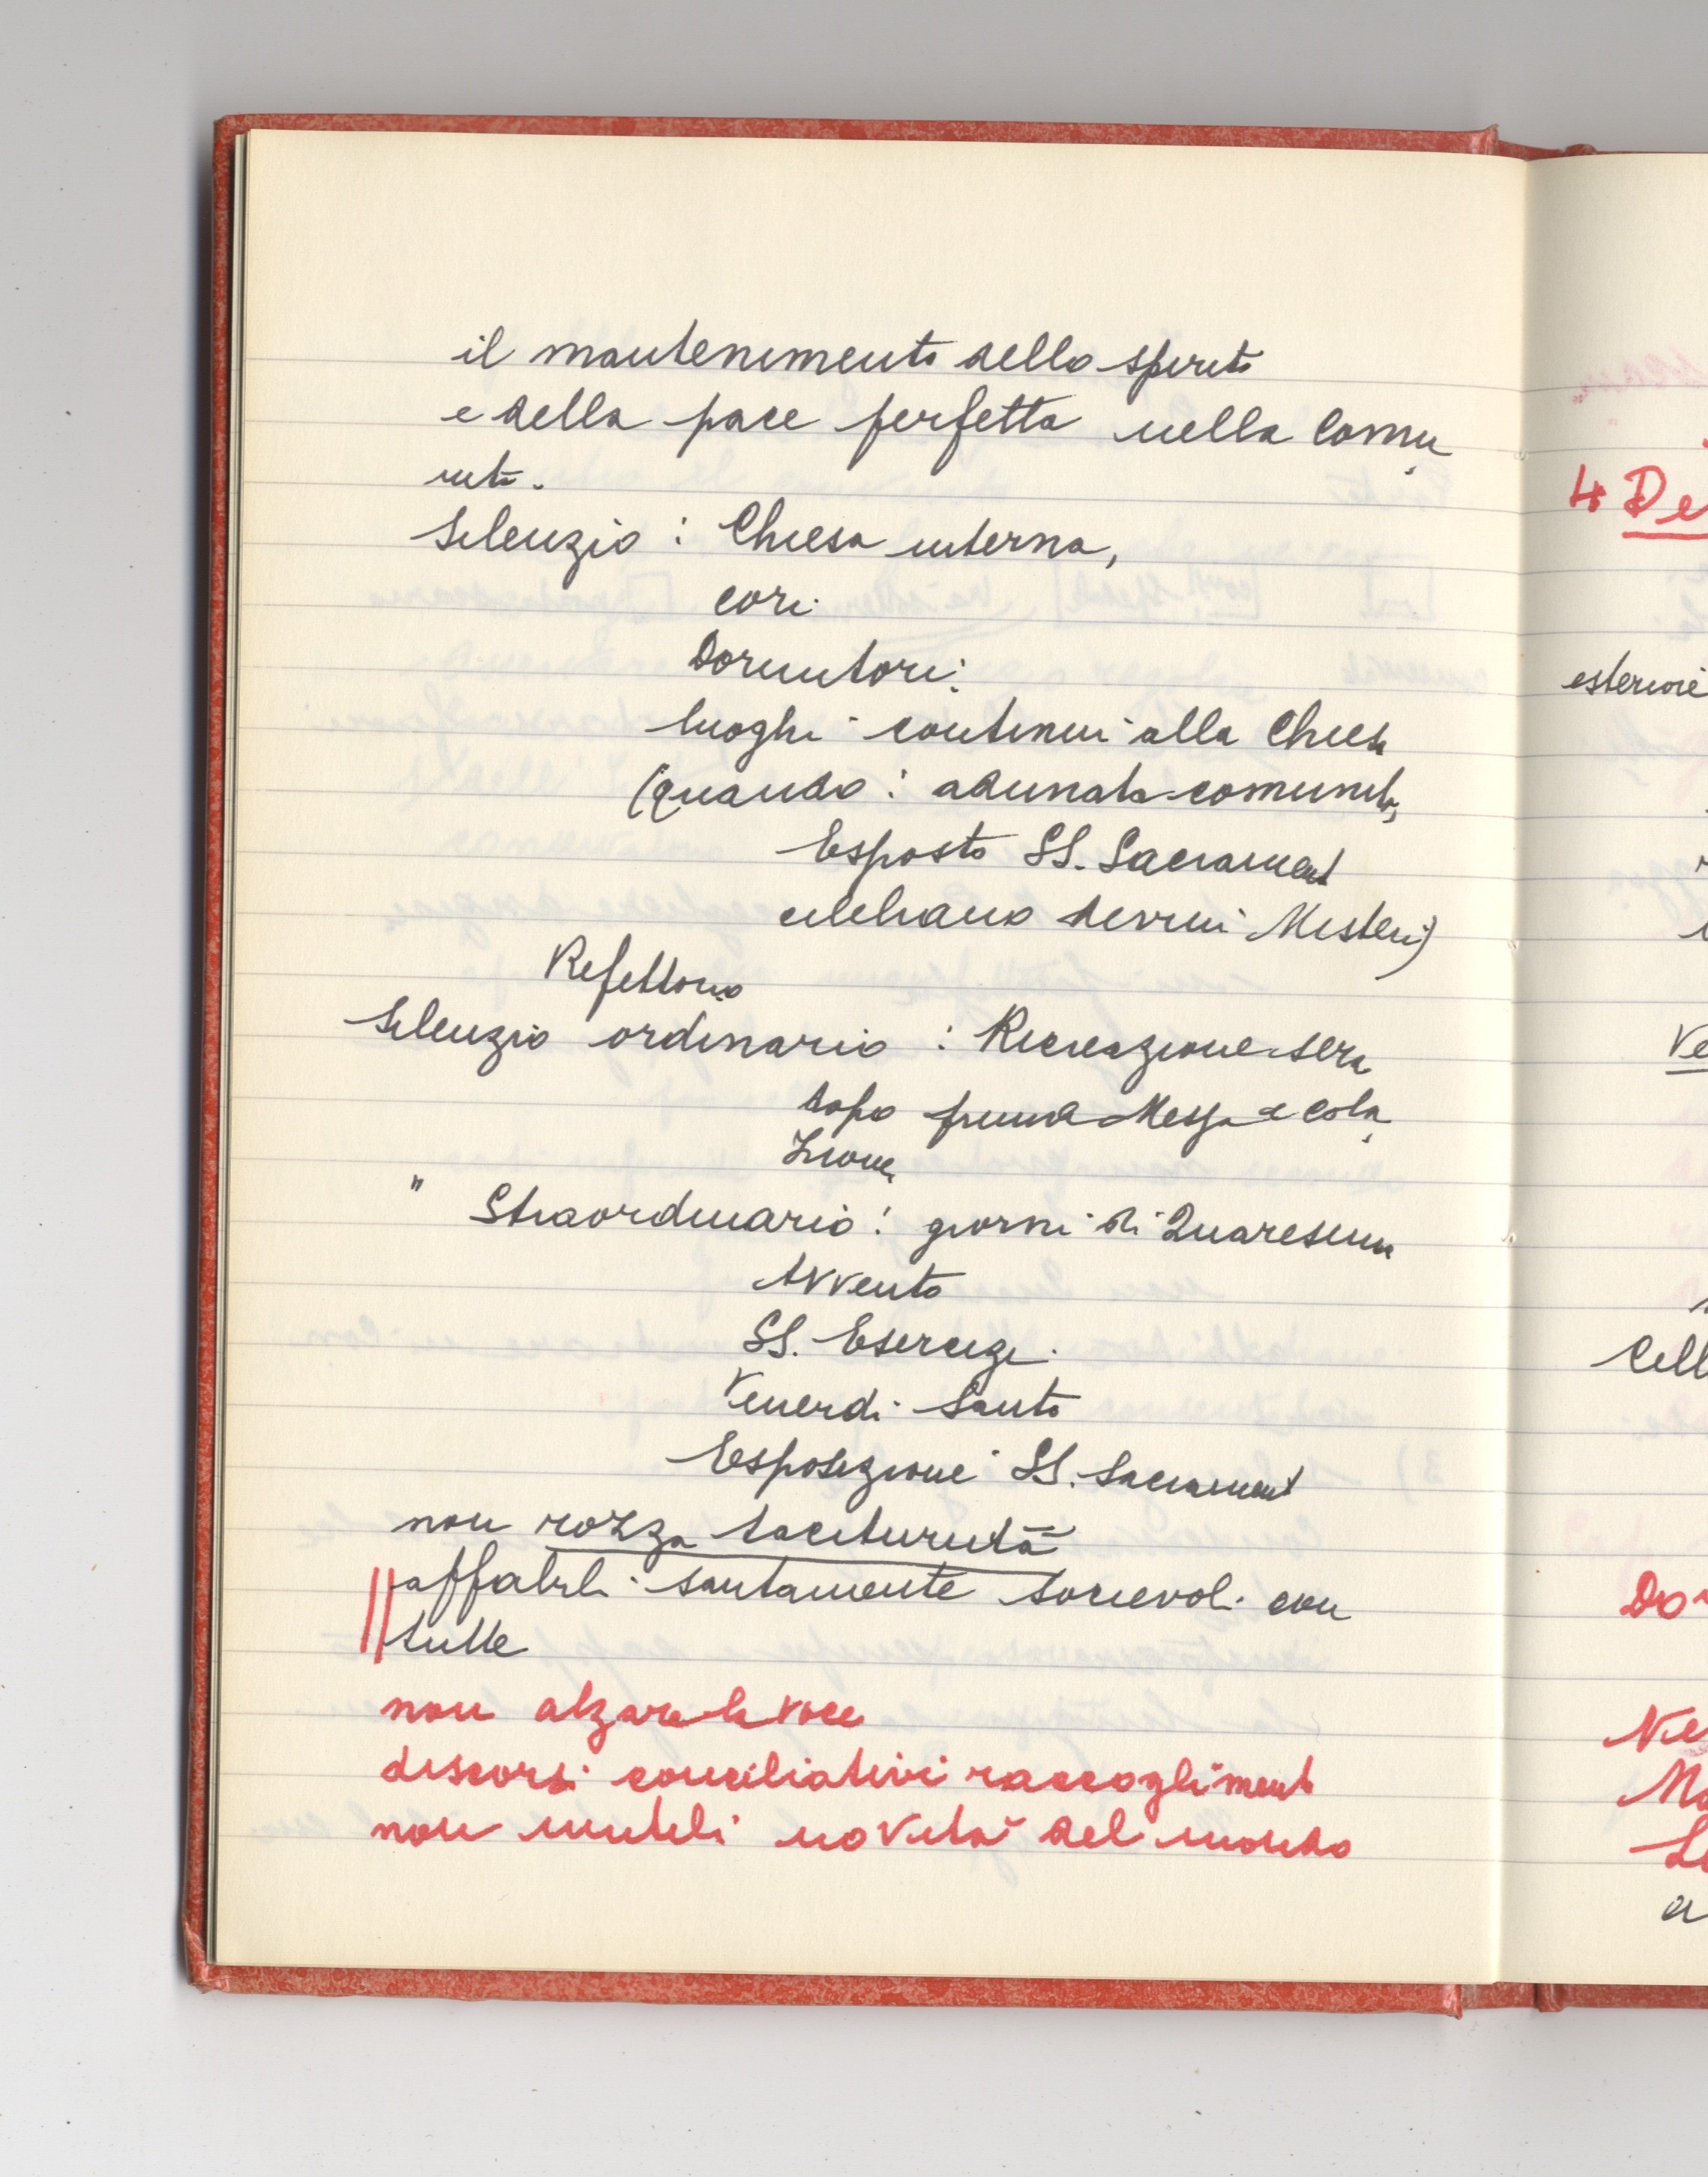 il mantenimento dello spirito
e della pace perfetta nella Comu
nità.
Silenzio : Chiesa interna,
cori
Dormitori
luoghi continui alla Chiesa
(quando : adunata comunità,
Esposto SS. Sacrament
celebrano divini Misteri)
Refettorio
Silenzio ordinario : Ricreazione sera
dopo prima Messa e cola
zione
" Straordinario : giorni di Quaresima
Avvento
SS. Esercizi
Venerdì Santo
Esposizione SS. Sacrament
non rozza taciturnità
affabili santamente socievoli con
tutte
non alzare la voce
discorsi conciliativi raccogliment
non inutili novità del mondo
4 De
esteriore
Ve
Cell
Do
Ne
Ma
a